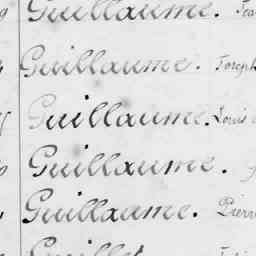 Guillaume.
Guillaume. Joseph
Guillaume. Louis
Guillaume.
Guillaume. Pierr